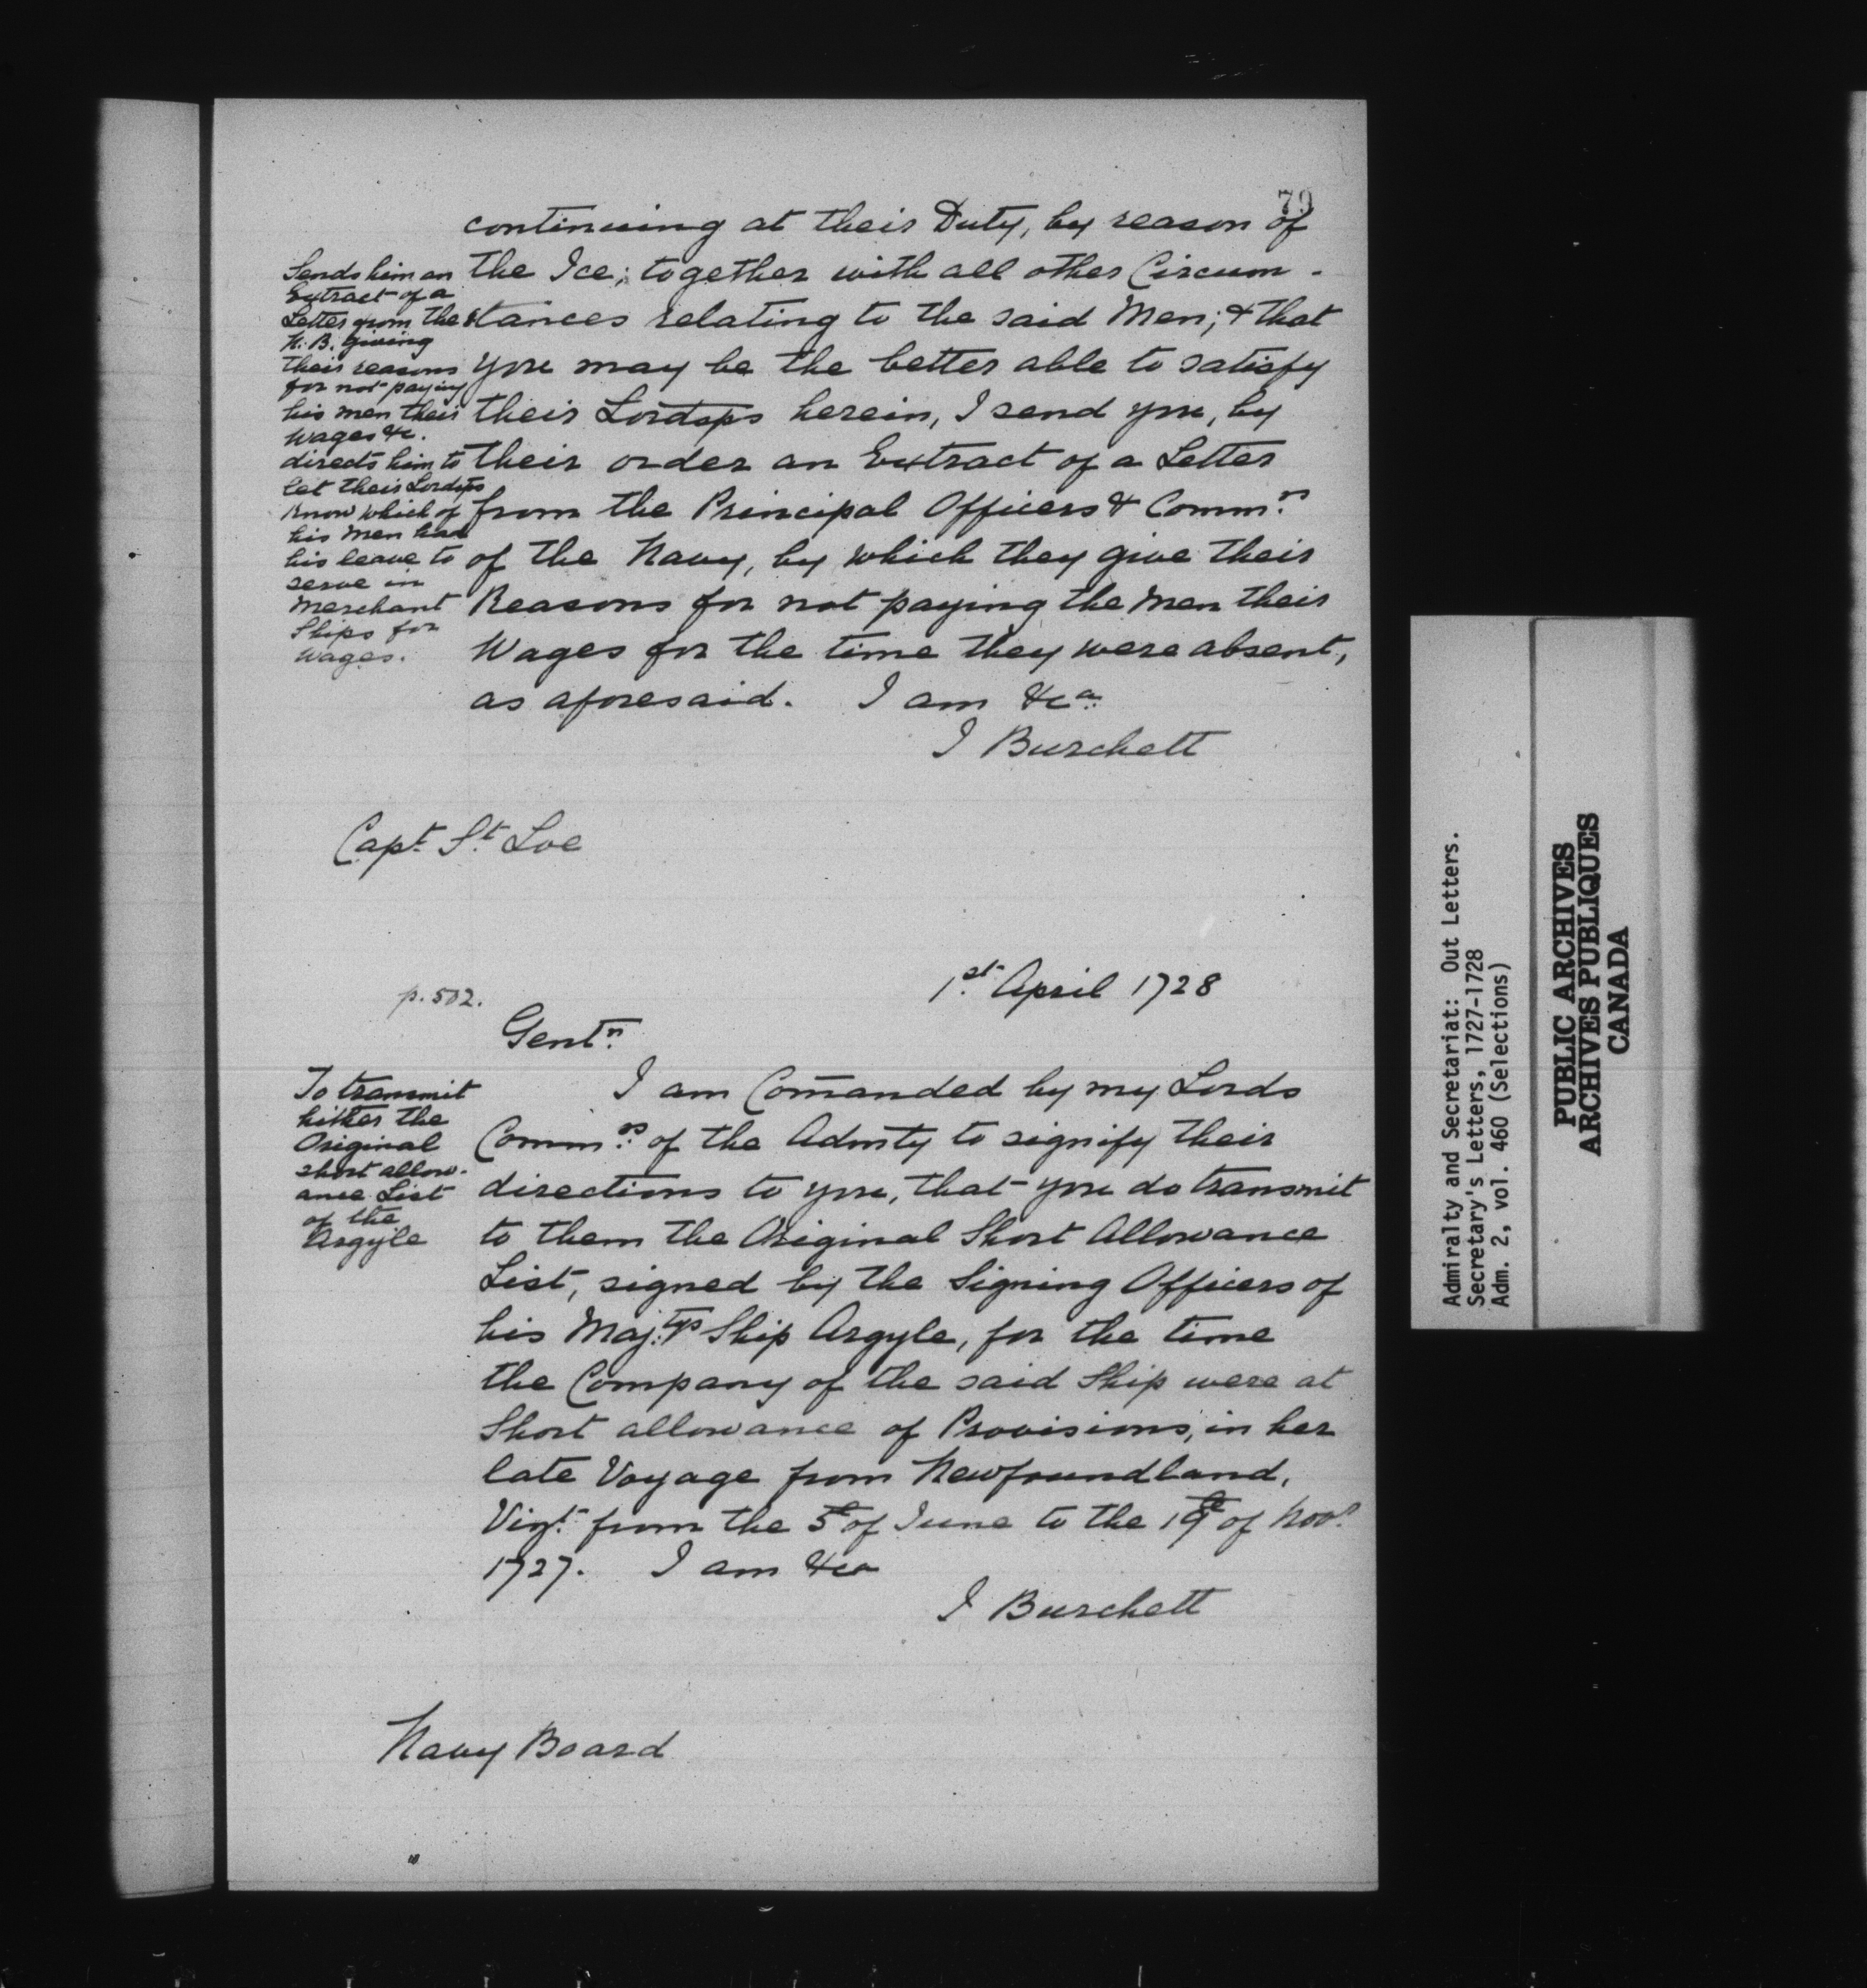 79
continuing at their Duty, by reason of
the Ice; together with all other Circum-
stances relating to the said Men; & that
you may be the better able to satisfy
their Lordsps herein, I send you, by
their order an Extract of a Letter
from the Principal Officers & Commrs
of the Navy, by which they give their
Reasons for not paying the Men their
Wages for the time they were absent,
as aforesaid. I am &ca
J Burchett
Sends him an
Extract of a
Letter from the
N. B. giving
their reasons
for not paying
his men their
Wages &c.
directs him to
let their Lordsps
know which of
his Men had
his leave to
serve in
Merchant
Ships for
Wages.
Capt. St. Loe
p. 502.
1st April 1728
Gentn
I am Com̄anded by my Lords
Commrs of the Admty to signify their
directions to you, that you do transmit
to them the Original Short Allowance
List, signed by the Signing Officers of
his Maj.tys Ship Argyle, for the time
the Company of the said Ship were at
Short allowance of Provisions, in her
late Voyage from Newfoundland,
Vizt from the 5th of June to the 19th of Novr
1727. I am &ca
J Burchett
To transmit
hither the
Original
short allow-
ance List
of the
Argyle
Navy Board
Admiralty and Secretariat: Out Letters.
Secretary's Letters, 1727-1728
Adm. 2, vol. 460 (Selections)
PUBLIC ARCHIVES
ARCHIVES PUBLIQUES
CANADA